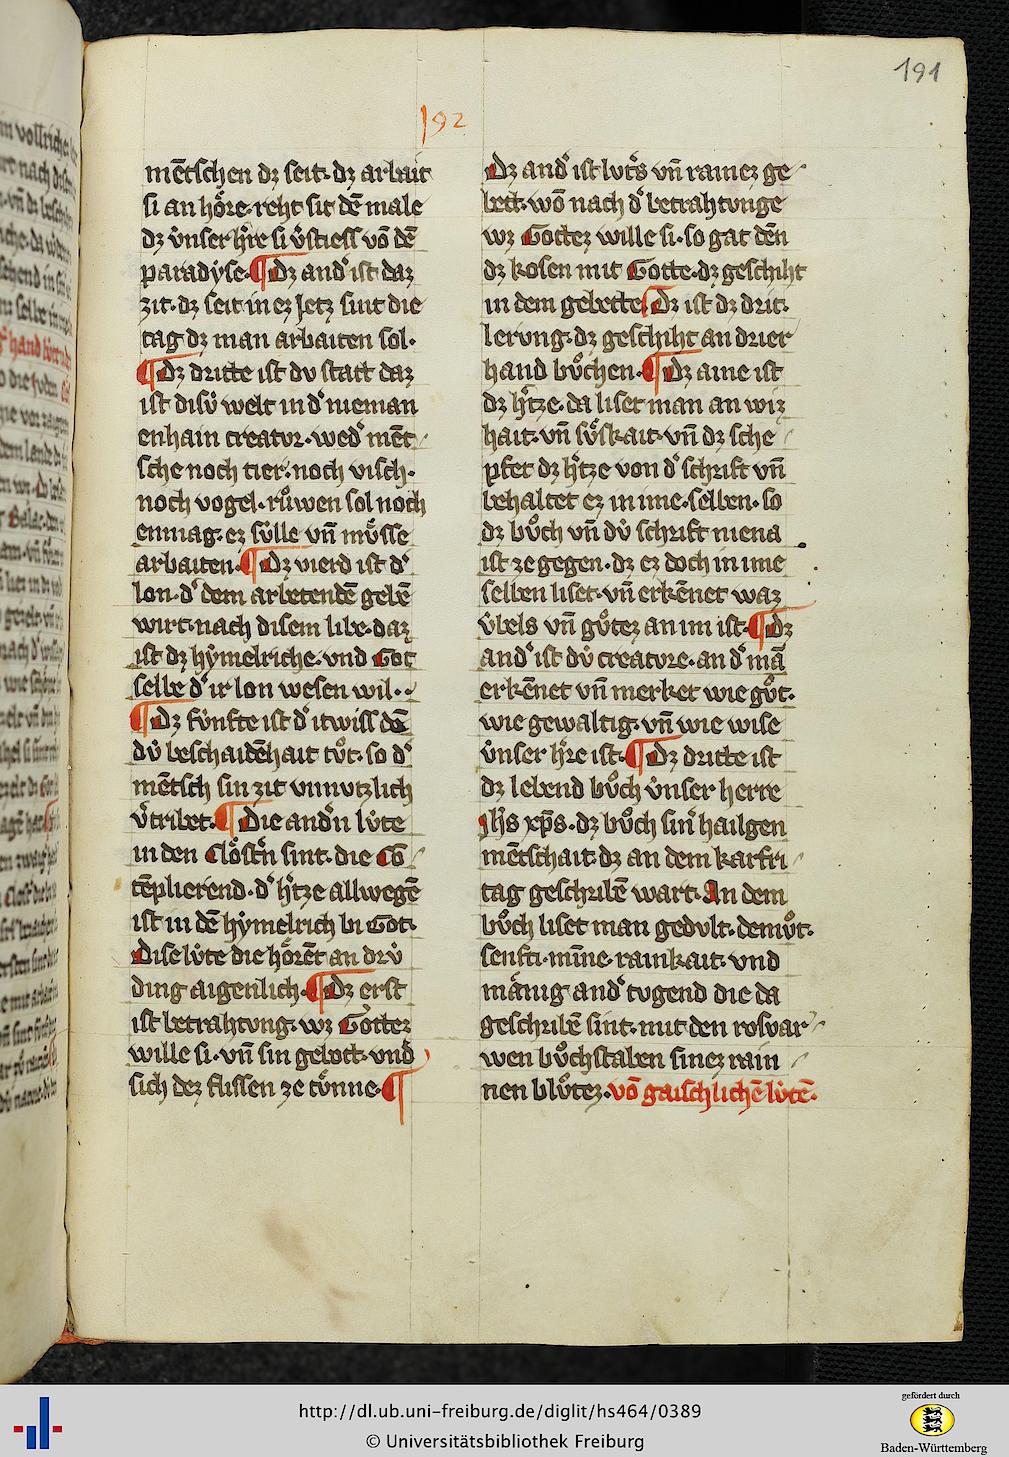 191
192
mētschen dz seit. dz arbait
si an hoͤre. reht sit dē male
dz v̇nser hͬre si v̓stiess vō dē
paradyse. ¶ Dz and̓ ist daz
zit. dz seit in ez Jetz sint die
tag dz man arbaiten sol.
¶ Dz dritte ist dv statt daz
ist disv̇ welt in d̓ nieman
enhain creatvr. wed̓ mēt
sche noch tier. noch visch.
noch vogel. růwen sol noch
enmag. ez sv̇lle vn̄ mvͤsse
arbaiten. ¶ Dz vierd ist d̓
lon. d̓ dem arbetendē gebē
wirt. nach disem libe. daz
ist dz hẏmelriche. vnd Got
selbe d̓ ir lon wesen wil.
¶ Dz fv̇nfte ist d̓ itwiss dē
dv̇ beschaidēhait tvͦt. so d̓
mētsch sin zit vnnutzlich
v̓tribet. ¶ Die and̓n lv̇te
in den Cloͤst̓n sint. die Cō
tēplierend. d̓ h̓tze allwegē
ist in dē hẏmelrich bi Got.
Dise lv̇te die hoͤrēt an drv̇
ding aigenlich. ¶ Dz erst
ist betrahtvng. wz Gottez
wille si. vn̄ sin gebott. vnd
sich dez flissen ze tvͦnne. ¶
Dz and̓ ist lvt̓s vn̄ rainez ge
bett. wō nach d̓ betrahtvnge
wz Gottez wille si. so gat dēn
dz kosen mit Gotte. dz geschiht
in dem gebette. Dz ist dz drit.
lervng. dz geschiht an drier
hand bvͤchen. ¶ Dz aine ist
dz h̓tze. da liset man an wiz
hait. vn̄ svͤskait. vn̄ dz sche
pfet dz h̓tze von d̓ schrift vn̄
behaltet ez in ime. selben. so
dz bvͦch vn̄ dv̇ schrift niena
ist ze gegen. dz ez doch in ime
selben liset. vn̄ erkēnet waz
v̇bels vn̄ gvͦtez an im ist. ¶ Dz
and̓ ist dv̇ creatvre. an d̓ mā
erkēnet vn̄ merket wie gvͦt.
wie gewaltig. vn̄ wie wise
v̇nser hͬre ist. ¶ Dz dritte ist
dz lebend bvͦch v̇nser herre
Jhs xp̄s. dz bvͦch sin̓ hailgen
mētschait. dz an dem karfri
tag geschribē wart. An dem
bvͦch liset man gedvlt. demvͦt.
senfti. min̄e. rainkait. vnd
mānig and̓ tvgend die da
geschribē sint. mit den rosvar
wen bvͦchstaben sinez rain
nen blvͦtez. vō gaischlichē lv̇tē.
http://dl.ub.uni-freiburg.de/diglit/hs464/0389
© Universitätsbibliothek Freiburg
gefördert durch
Baden-Württemberg